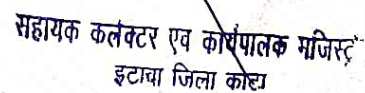 सहायक कलेक्टर एव कार्यपालक मजिस्ट्रे
इटावा जिला कोटा